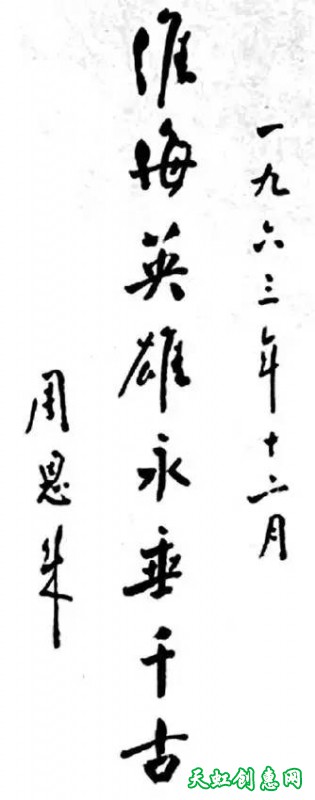 一九六三年十二月
淮海英雄永垂千古
周恩来
天虹创惠网